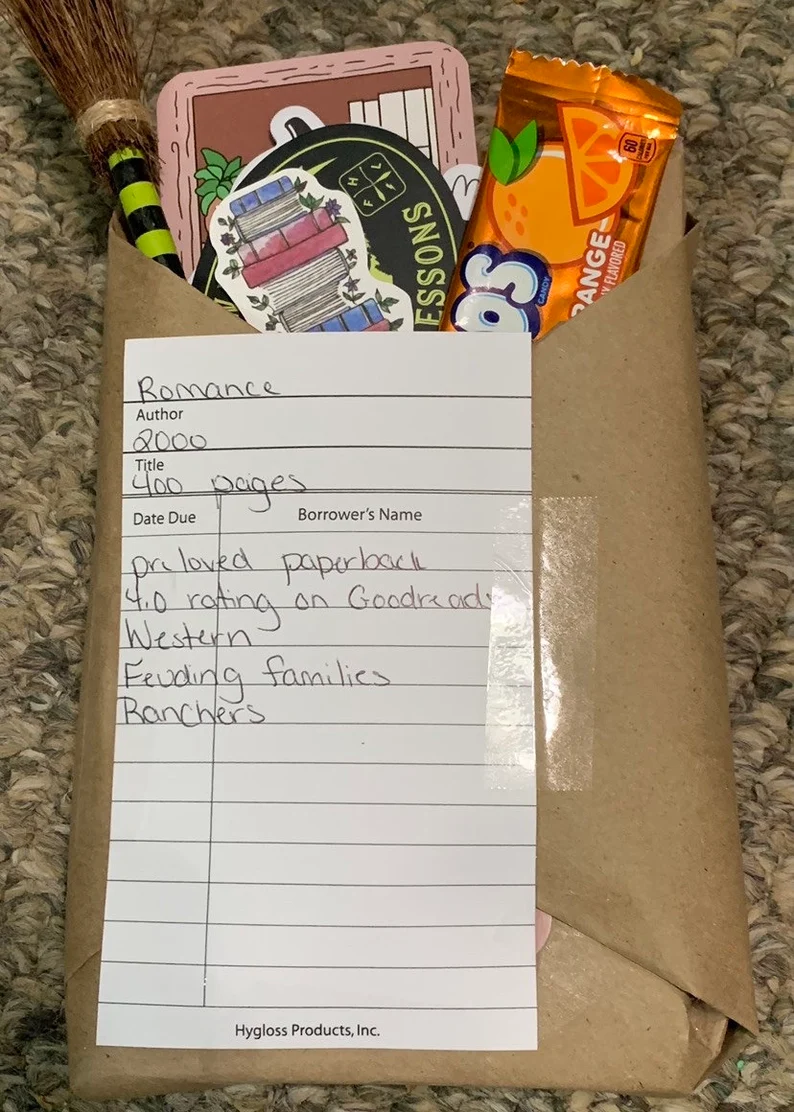 H V L F
ESSONS
60
CALORIES
PER PKG
OS
CANDY
ANGE
Y FLAVORED
Romance
Author
2000
Title
400 pages
Date Due Borrower's Name
preloved paperback
4.0 rating on Goodreads
Western
Feuding families
Ranchers
Hygloss Products, Inc.